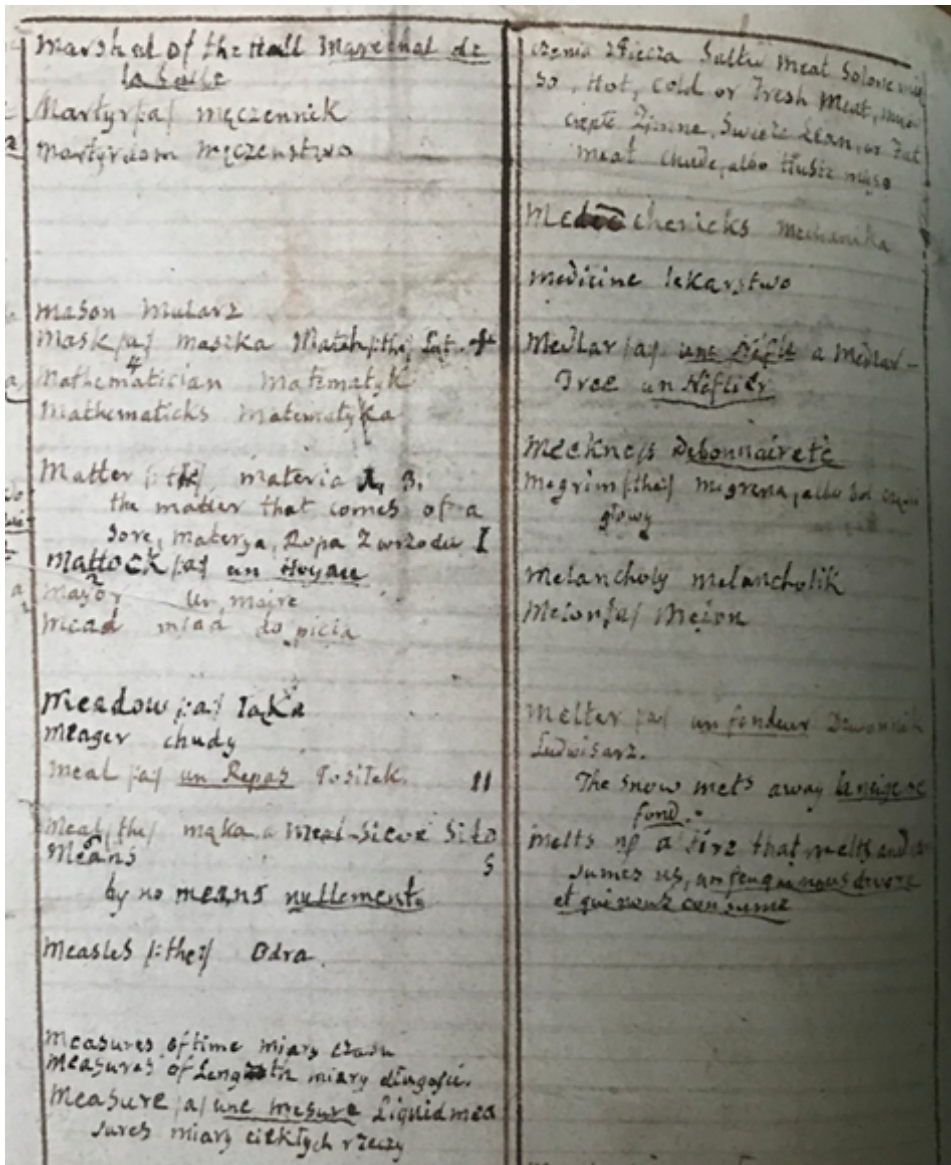 Marshal of the Hall Marechal de
la Salle
Martyr /a/ męczennik
Martyrdom męczenstwo
Mason Mularz
Mask /a/ maszka Match /the/
Mathematician matematyk
Mathematicks matematyka
Matter materia A, B.
the matter that comes of a
sore, materya, Ropa z wrzodu I
Mattock /a/ un Hoyau
Mayor un maire
Mead miod do picia
Meadow /a/ łąka
meager chudy
Meal /a/ un Repas Posiłek. II
Meal /the/ mąka a Meal-sieve Sito
Means S
by no means nullement
Measles /:the:/ Odra
Measures of time miary czasu
Measures of Length miary długości.
Measure /a/ une mesure Liquid mea
sures miary ciekłych rzeczy
Meat Solone mię
so, Hot, cold or Fresh Meat,
ciepłe Zimne, Swieże Lean, or Fat
meat chude, albo tłuste mięso
chenicks mechanika
medicine lekarstwo
Medlar /a/ une Néfle a Medlar-
Tree un Néflier
Meekness Debonnaireté
Megrim /the/ migrena, albo bol
głowy
melancholy melancholik
Melon /a/ Melon
Melter /a/ un fondeur
Ludwisarz.
The snow melts away la neige se
fond.
melts us a fire that melts and
sumes us, un feu qui nous devore
et qui nous consume